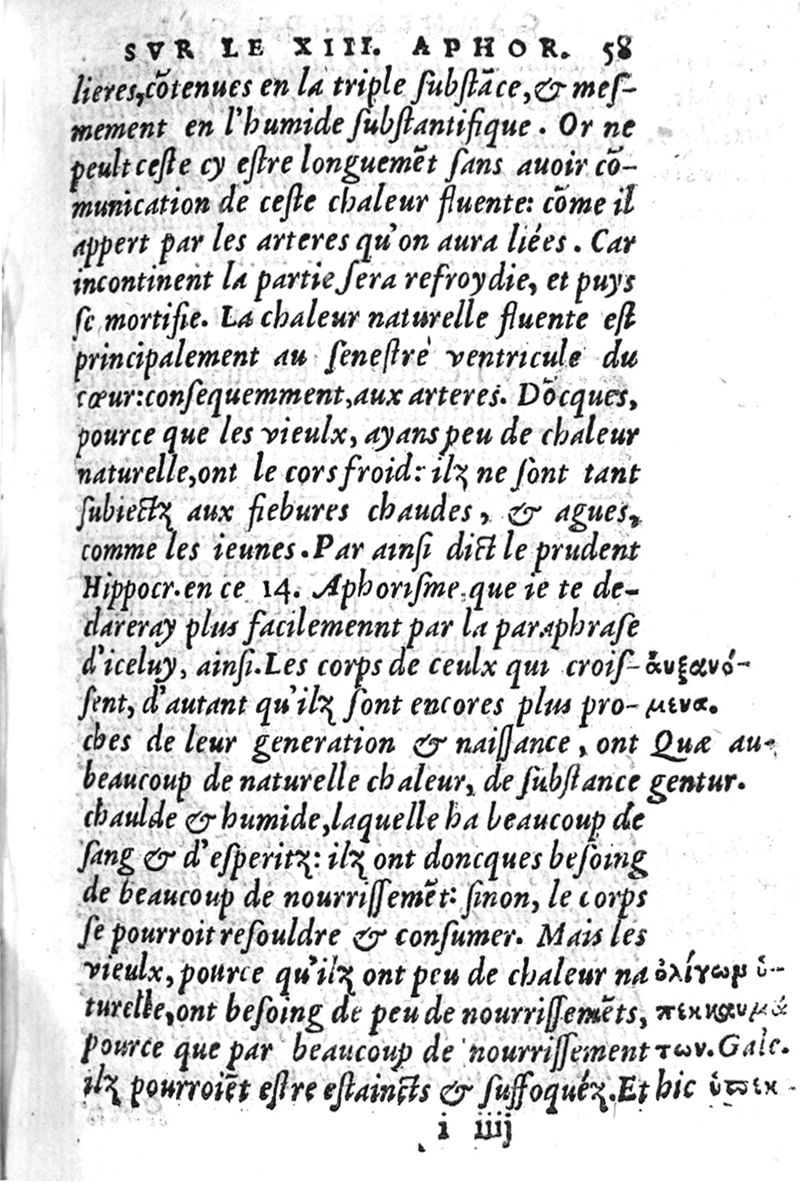 SVR LE XIII. APHOR. 58
lieres,cõtenues en la triple ſubſtãce,& meſ-
mement en l'humide ſubſtantifique. Or ne
peult ceſte cy eſtre longuemẽt ſans auoir cõ-
munication de ceſte chaleur fluente: cõme il
appert par les arteres qu'on aura liées. Car
incontinent la partie ſera refroydie, et puys
ſe mortifie. La chaleur naturelle fluente eſt
principalement au ſeneſtre ventricule du
cœur:conſequemment,aux arteres. Dõcques,
pource que les vieulx, ayans peu de chaleur
naturelle,ont le cors froid: ilꝫ ne ſont tant
ſubiectꝫ aux fiebures chaudes, & agues,
comme les ieunes. Par ainſi dict le prudent
Hippocr. en ce 14. Aphoriſme, que ie te de-
clareray plus facilemennt par la paraphraſe
d'iceluy, ainſi. Les corps de ceulx qui croiſ-
ſent, d'autant qu'ilꝫ ſont encores plus pro-
ches de leur generation & naiſſance, ont
beaucoup de naturelle chaleur, de ſubſtance
chaulde & humide,laquelle ha beaucoup de
ſang & d'eſperitꝫ: ilꝫ ont doncques beſoing
de beaucoup de nourriſſemẽt: ſinon, le corps
ſe pourroit reſouldre & conſumer. Mais les
vieulx, pource qu'ilꝫ ont peu de chaleur na
turelle,ont beſoing de peu de nourriſſemẽts,
pource que par beaucoup de nourriſſement
ilꝫ pourroiẽt eſtre eſtainctꝭ & ſuffoquéꝫ. Et
ἀυξανό-
μενα.
Quæ au-
gentur.
ὀλίγωμ ὑ-
πεκκαυμά
των. Gale.
hic ὑπεκ-
i iiij